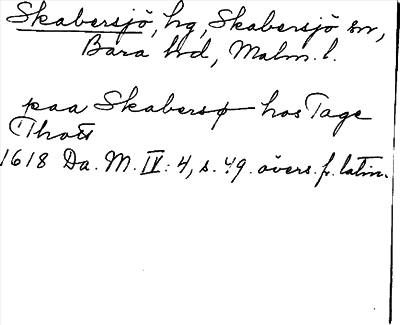 Skabersjö, hg, Skabersjö sn,
Bara hd, Malm. l.
paa Skabersø hos Tage
Thott
1618 Da. M. IV: 4, s. 49. övers. fr. latin.